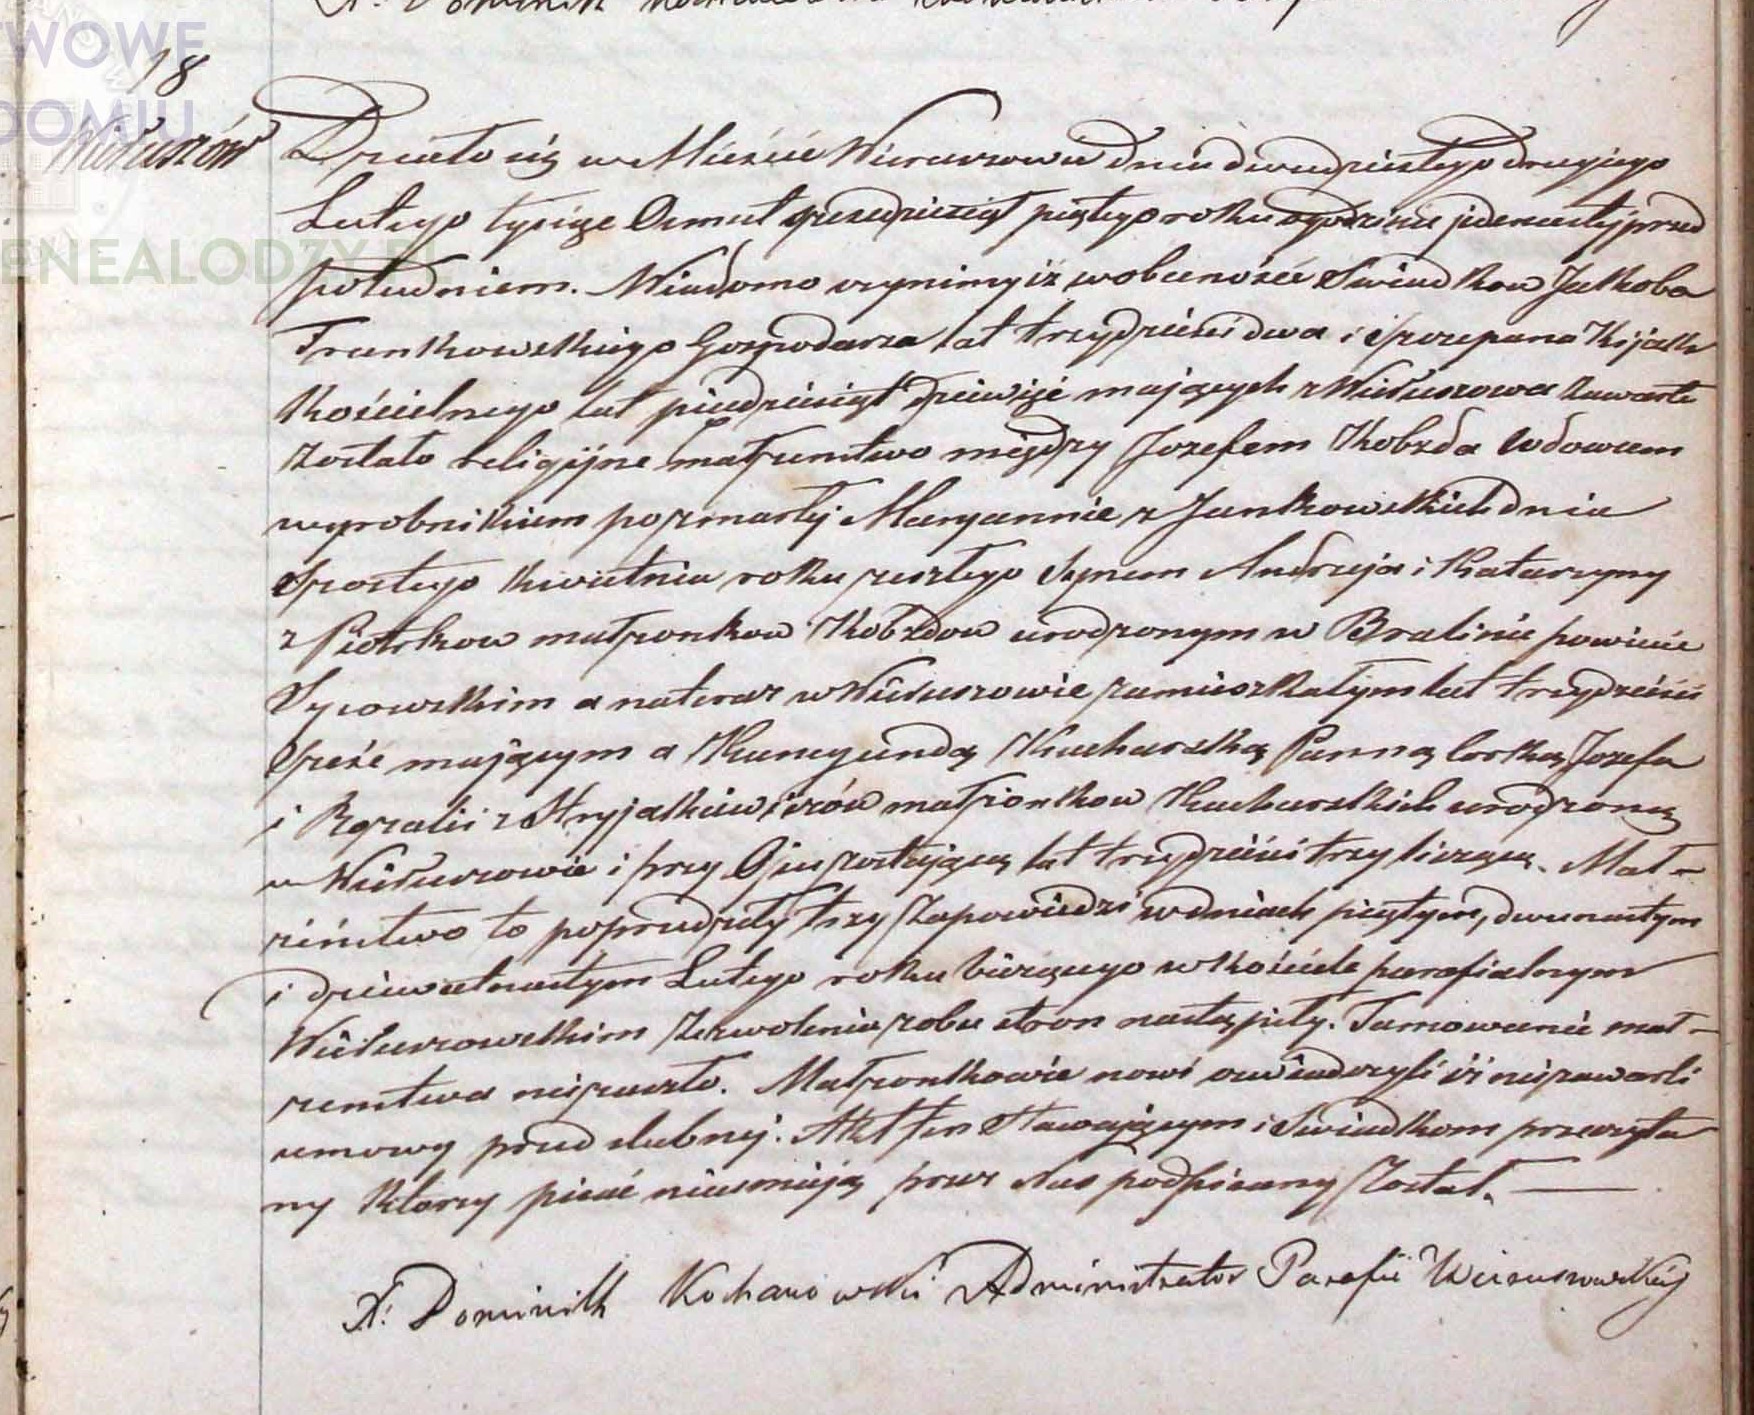 18
Wieruszów
Działo się w Mieście Wieruszowie dnia dwudziestego drugiego
Lutego tysiąc Osmset sześćdziesiąt piątego roku o godzinie jedenastej przed
południem. Wiadomo czynimy iż w obecności Swiadków Jakoba
Trunkowskiego Gospodarza lat trzydzieści dwa i Szczepana Kijak
Kościelnego lat piędziesiąt dziewięć mających z Wieruszowa Zawarte
Zostało religijne małżeństwo między Jozefem Kobzda Wdowcem
wyrobnikiem po zmarłej Maryannie z Jankowskich dnia
Szostego Kwietnia roku zeszłego Synem Andrzeja i Katarzyny
z Piotrkow małżonkow Kobzdow urodzonym w Bralinie powiecie
Sycowskim a na teraz w Wieruszowie zamieszkałym lat trzydzieści
Sześć mającym a Kunegundą Kucharską Panną Corką Jozefa
i Rozalii z Stryjakiewiczów małżonkow Kucharskich urodzoną
w Wieruszowie i przy Ojcu zostającą lat trzydzieści trzy liczącą. Mał-
żeństwo to poprzedziły trzy Zapowiedzi w dniach piątym, dwunastym
i dziewietnastym Lutego roku bieżącego w Kościele parafialnym
Wieruszowskim Zezwolenie z obu stron nastąpiły. Tamowanie mał-
żenstwa niezaszło. Małżonkowie nowi oswiadczyli iż niezawarli
umowy przed slubnej. Akt ten Stawającym i Swiadkom przeczyta
ny którzy pisać nieumieją przez Nas podpisany Został.
X: Dominik Kochanowski Administrator Parafii Wieruszowskiej
WOWE
DOMIU
ENEALODZY.PL